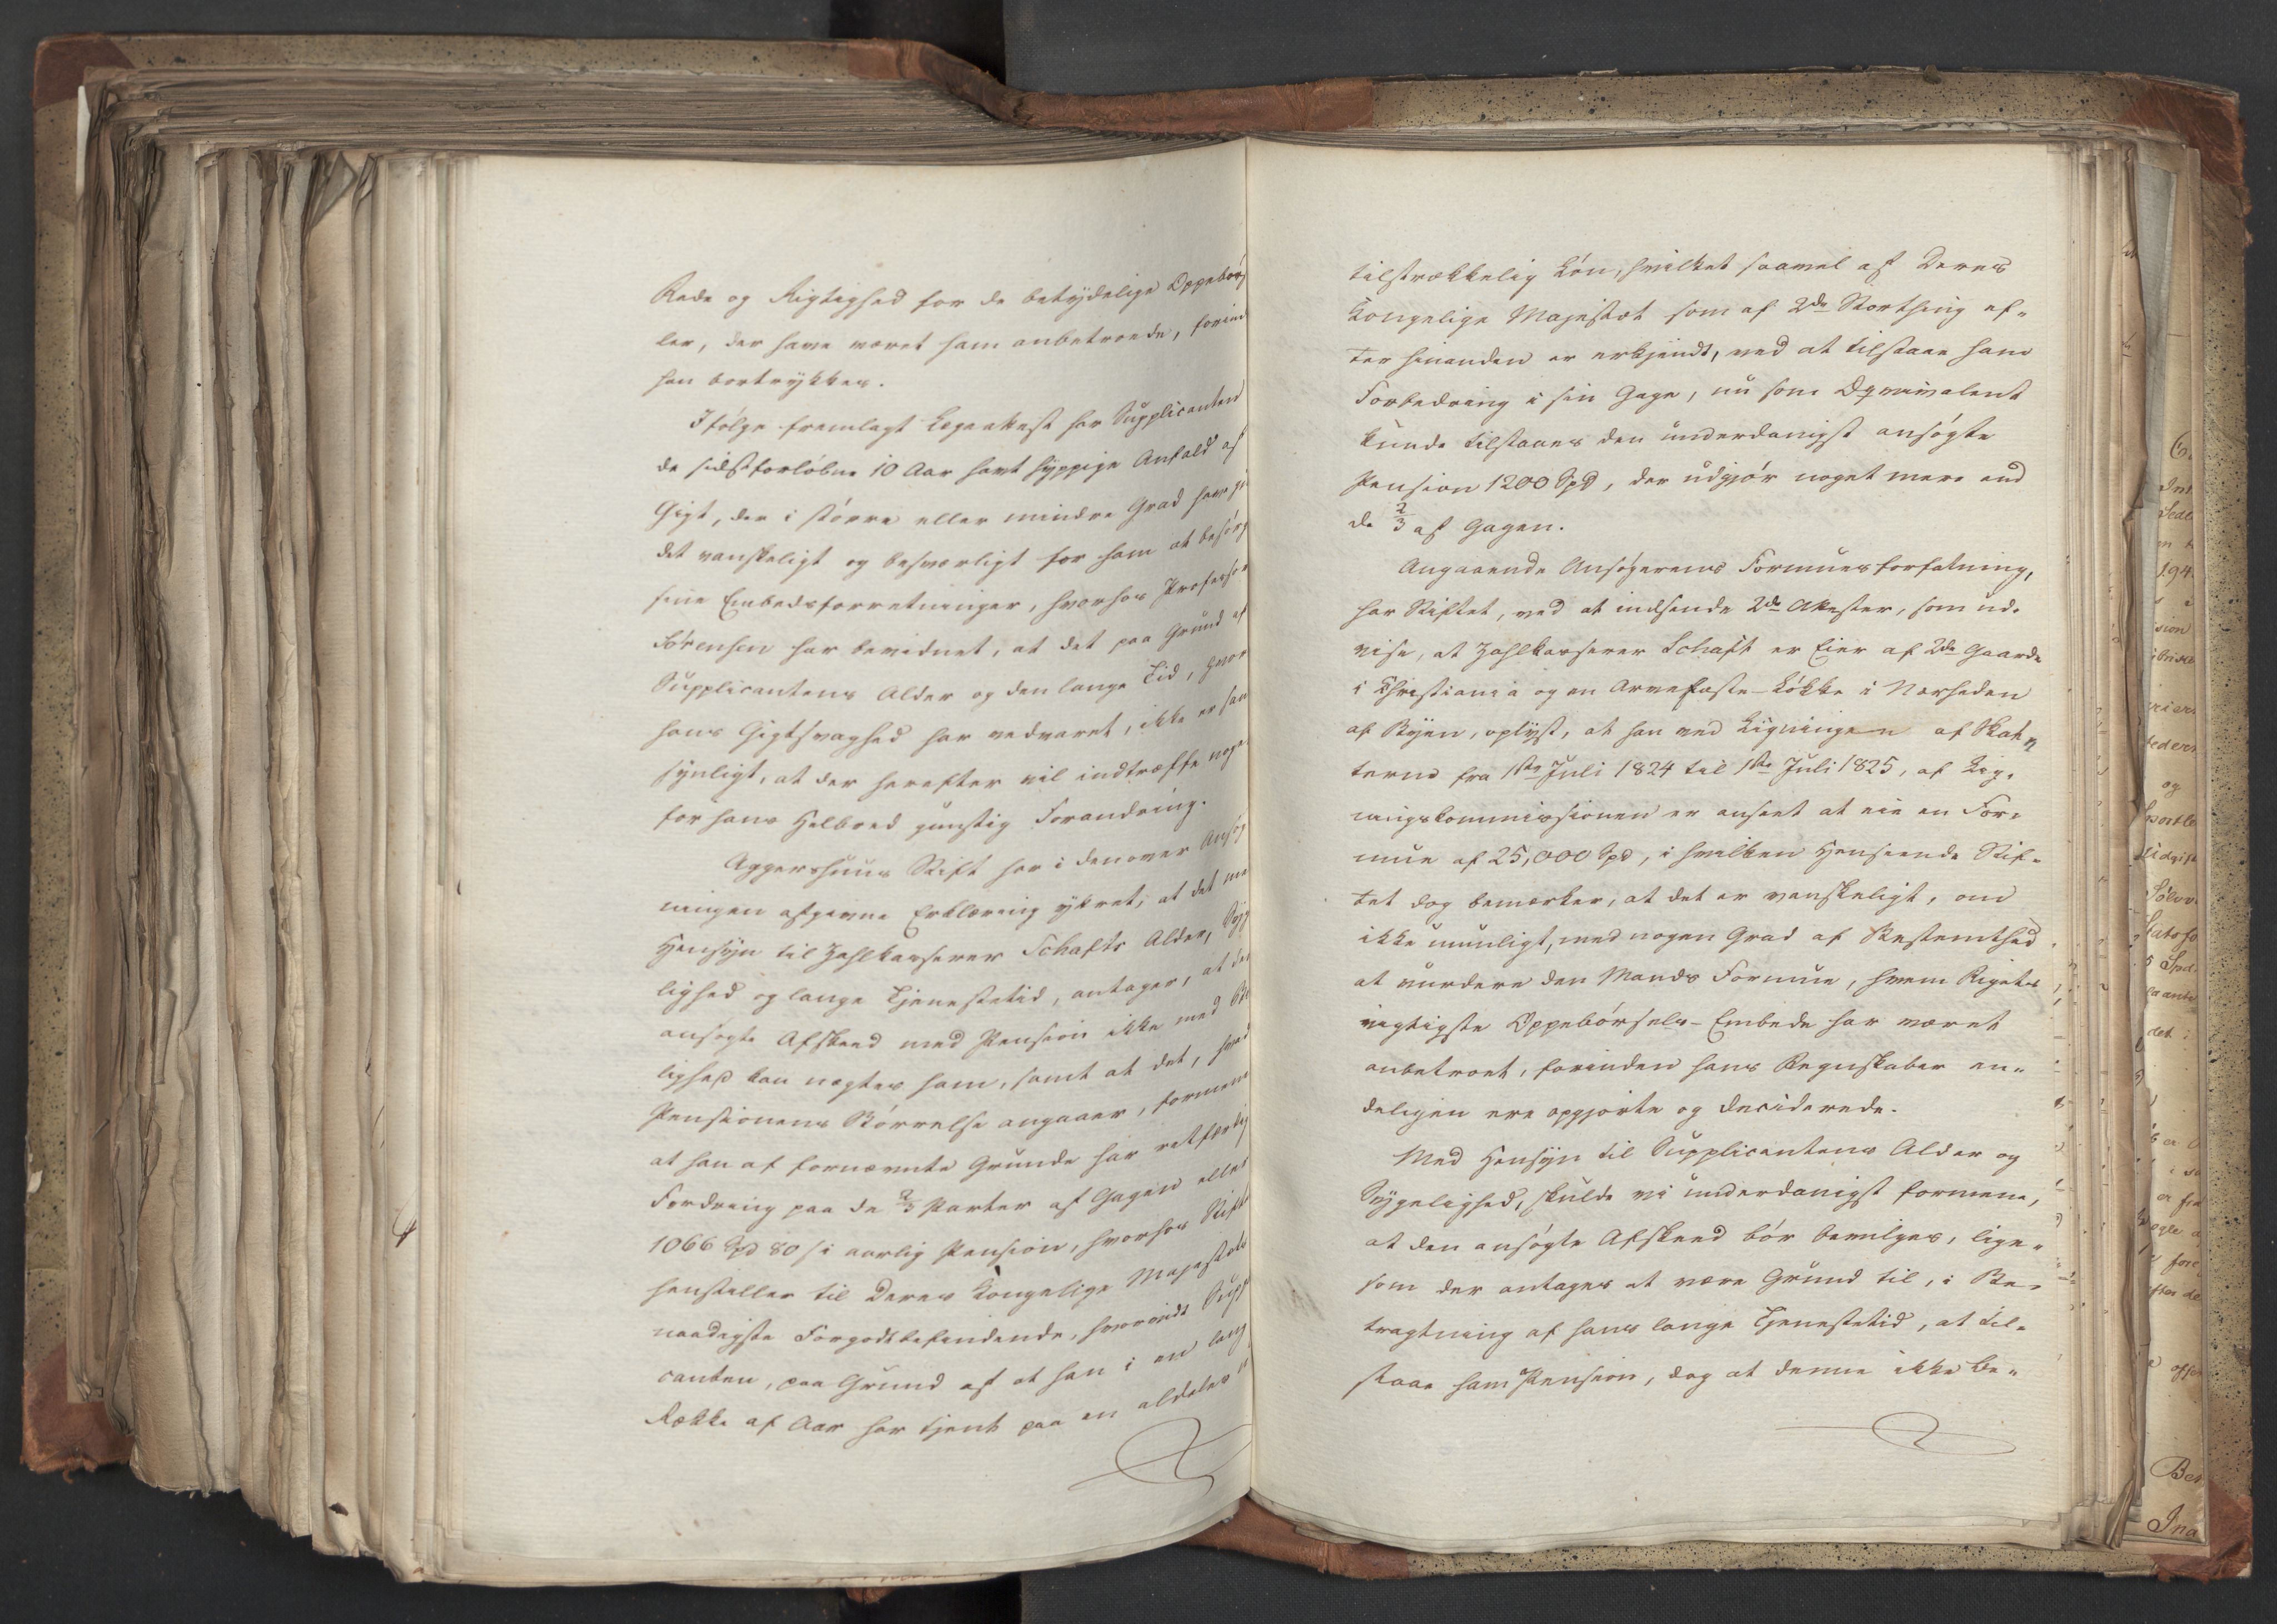 Rede og Rigtighed for de betydelige Oppebørs
ler, der have været ham anbetroede, forind
han bortrykkes.
Ifølge fremlagt Lægeattest har Supplicanten
de sidstforløbne 10 Aar havt hyppige Anfald af
Gigt, der i større eller mindre Grad har gi
det vanskeligt og besværligt for ham at besørg
sine Embedsforretninger, hvorhos Professor
Sørensen har bevidnet, at det paa Grund af
Supplicantens Alder og den lange Tid, hvor
hans Gigtsvaghed har vedvaret, ikke er san
synligt, at der herefter vil indtræffe noge
for hans Helbred gunstig Forandring.
Aggershuus Stift har i den over Ansøg
ningen afgivne Erklæring yttret, at det me
Hensyn til Zahlkasserer Schafts Alder, Syg
lighed og lange Tjenestetid, antager, at den
ansøgte Afskeed med Pension ikke med Bil
lighed kan nægtes ham, samt at det, hvad
Pensionens Størrelse angaaer, formene
at han af fornævnte Grunde har retfærdig
Fordring paa de 2/3 Parter af Gagen eller
1066 Spd 80 s i aarlig Pension, hvorhos Stift
henstiller til Deres Kongelige Majestæts
naadigste Forgodtbefindende, hvorvidt Supp
canten, paa Grund af at han i en lang
Række af Aar har tjent paa en aldeles
tilstrækkelig Løn, hvilket saavel af Deres
Kongelige Majestæt som af 2de Storthing ef„
ter hinanden er erkjendt, ved at tilstaae ham
Forbedring i sin Gage, nu som Æqvivalent
kunde tilstaaes den underdanigst ansøgte
Pension 1200 Spd, der udgjør noget mere end
de 2/3 af Gagen.
Angaaende Ansøgerens Formuesforfatning,
har Stiftet, ved at indsende 2de Attester, som ud„
vise, at Zahlkasserer Schaft er Eier af 2de Gaarde
i Christiania og en Arvefæste-Løkke i Nærheden
af Byen, oplyst, at han ved Ligningen af Skat„
terne fra 1ste Juli 1824 til 1ste Juli 1825, af Lig„
ningskommissionen er anseet at eie en For„
mue af 25,000 Spd, i hvilken Henseende Stif„
tet dog bemærker, at det er vanskeligt, om
ikke umuligt, med nogen Grad af Bestemthed
at vurdere den Mands Formue, hvem Rigets
vigtigste Oppebørsels-Embede har været
anbetroet, forinden hans Regnskaber en„
deligen ere opgjorte og deciderede.
Med Hensyn til Supplicantens Alder og
Sygelighed, skulde vi underdanigst formene,
at den ansøgte Afskeed bør bevilges, lige„
som der antages at være Grund til, i Be„
tragtning af hans lange Tjenestetid, at til„
staae ham Pension, dog at denne ikke be„